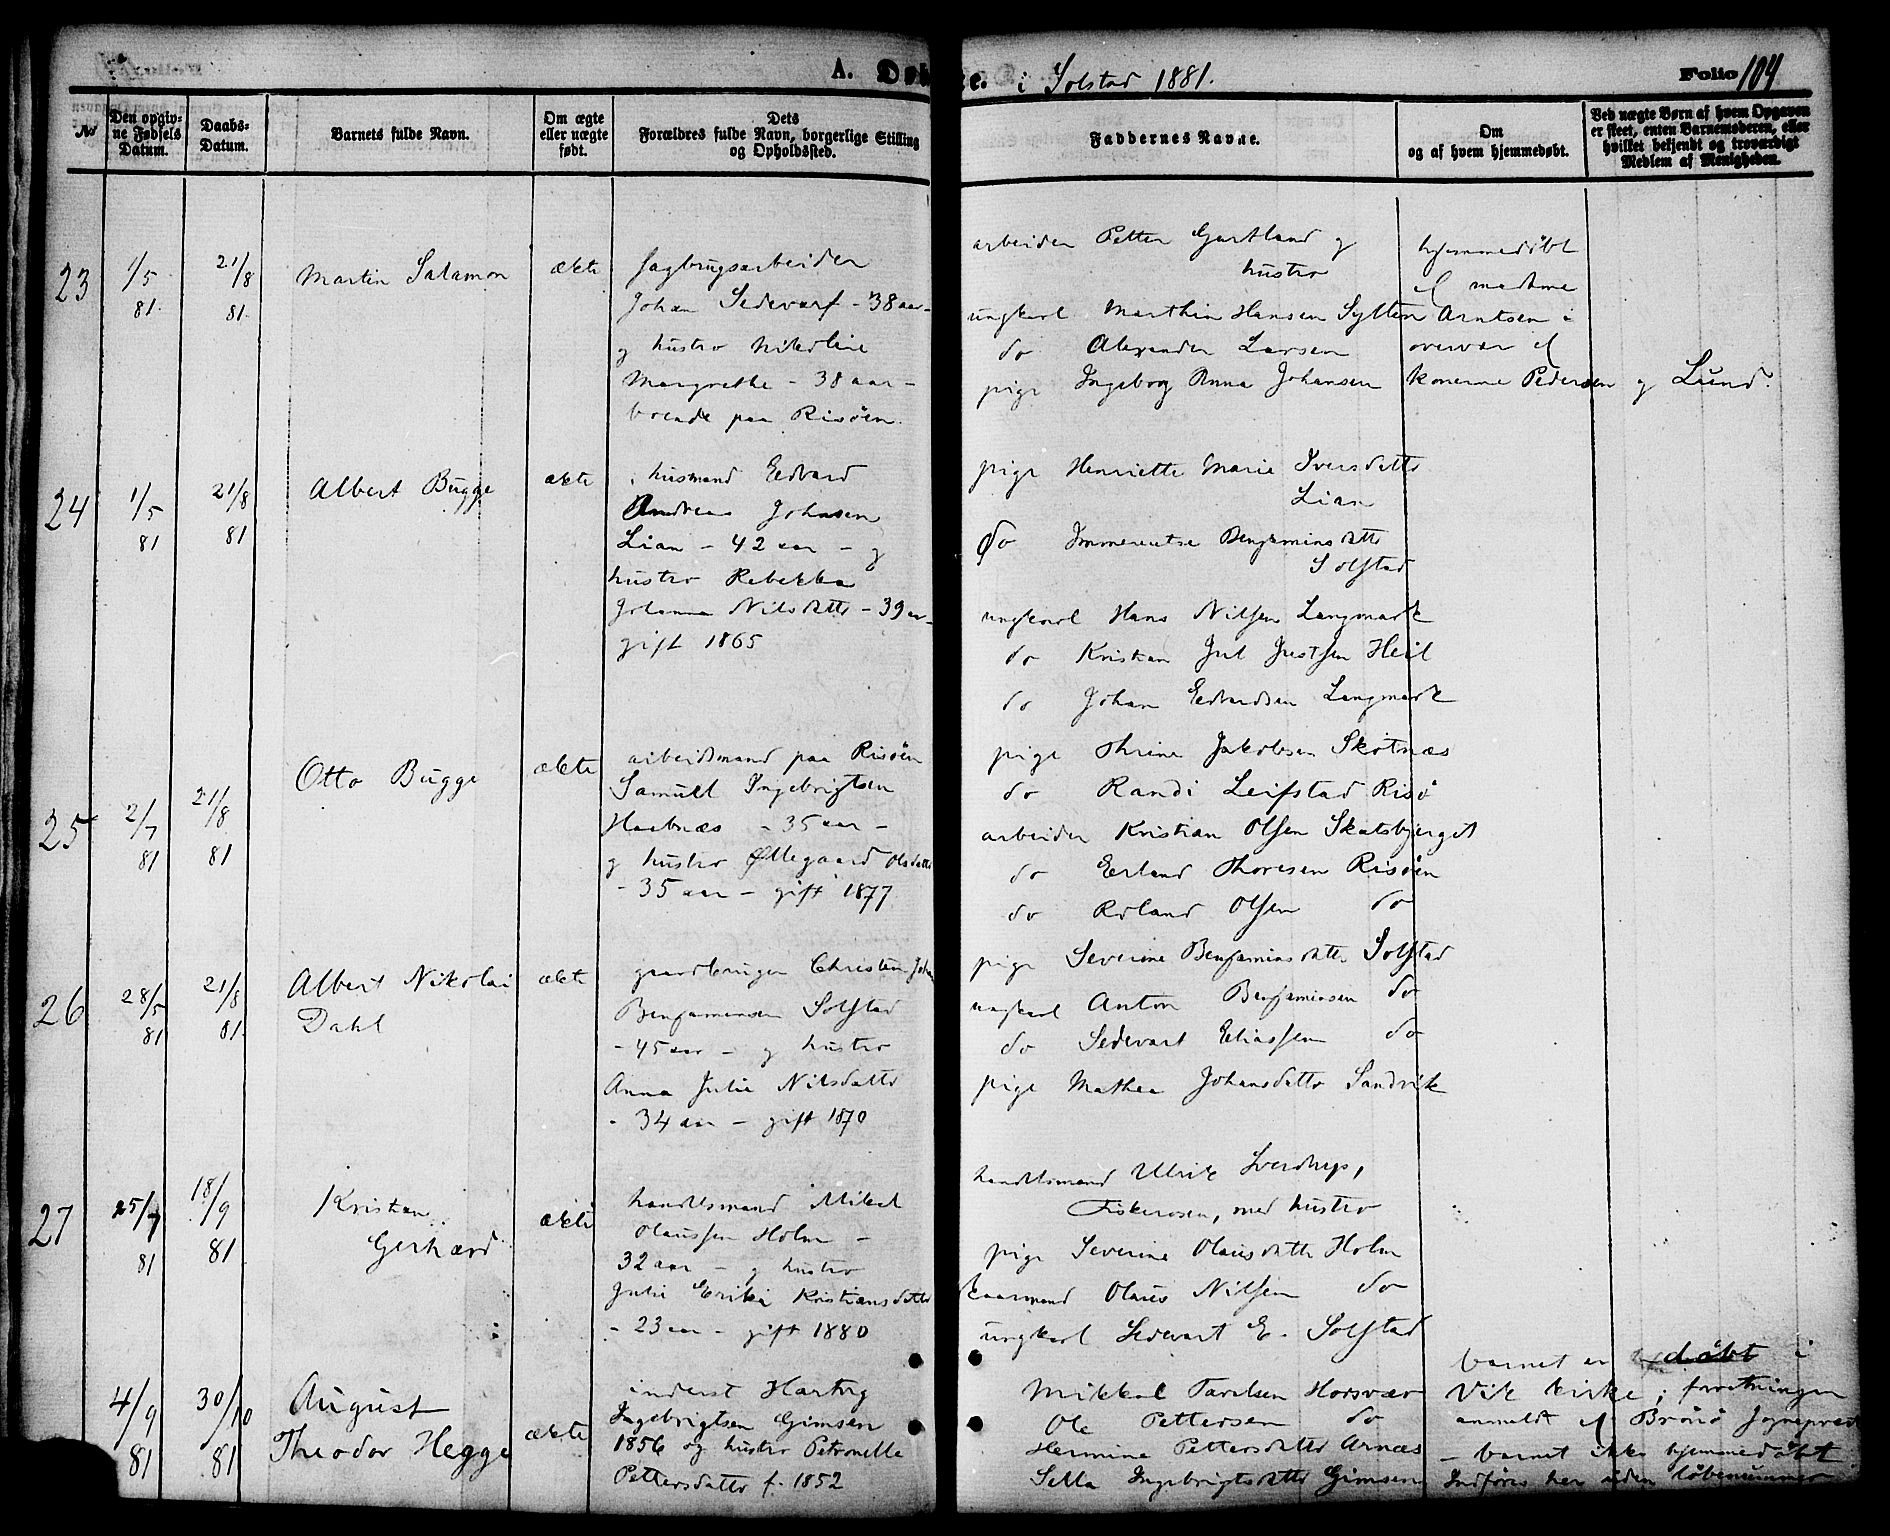 A. Døbte. i Solstad 1881. Folio 104
No
Den opgivne Fødsels Datum.
Daabs-Datum.
Barnets fulde Navn.
Om ægte eller uægte født.
Dets Forældres fulde Navn, borgerlige Stilling og Opholdssted.
Faddernes Navne.
Om og af hvem hjemmedøbt.
Ved uægte Børn af hvem Opgaven er skeet, enten Barnemoderen, eller hvilket bekjendt og troværdigt Medlem af Menigheden.
23
1/5 81.
21/8 81.
Martin Salamon
ækte
sagbrugsarbeider
Johan Sedevarf - 38 aar -
og hustro Nikoline
Margrethe - 38 aar -
boende paa Risöen.
arbeider Petter Gartland og
hustro
ungkarl Marthin Hansen Sytter
do Alexander Larsen
pige Ingeborg Anna Johansen
hjemmedöbt
af madame
Arntsen i
overvær af
konerne Pedersen og Lund.
24
1/5 81
21/8 81
Albert Bugge
ækte
husmand Eedvard
Andreas Johnsen
Lian - 42 aar - og
hustro Rebekka
Johanna Nilsdatter - 39 aar -
gift 1865
pige Henriette Marie Iversdatter
Lian
do Immerentse Benjaminsdatter
Solstad
ungkarl Hans Nilsen Langmark
do Kristian Jul Justsen Heil
do Johan Eedvardsen Langmark
25
2/7 81
21/8 81
Otto Bugge
ækte
arbeidsmand paa Risöen
Samuel Ingebrigtsen
Haabnæs - 35 aar -
og hustro Øllegaard Olsdatter
- 35 aar - gift 1877
pige Thrine Jakobsen Skotnæs
do Randi Leifstad Risö
arbeider Kristian Olsen Skatsbjerget
do Erland Thoresen Risöen
do Roland Olsen do
26
28/5 81
21/8 81.
Albert Nikolai
Dahl
ækte
gaardbruger Christen Johan
Benjaminsen Solstad
- 45 aar - og hustro
Anna Julie Nilsdatter
- 34 aar - gift 1870
pige Severine Benjaminsdatter Solstad
ungkarl Anton Benjaminsen do
do Sedevart Eliassen do
pige Mathea Johansdatter Sandvik
27
25/7 81
18/9 81
Kristian
Gerhard
ækte
handelsmand Mikal
Olaussen Holm -
32 aar - og hustro
Julie Erika Kristiansdatter
- 23 aar - gift 1880
handelsmand Ulrik Sverdrup,
Fiskerosen, med hustro
pige Severine Olausdatter Holm
kaarmand Olaus Nilsen do
ungkarl Sedevart E. Solstad
4/9 81
30/10 81
August
Theodor Hegge
ækte
inderst Hartvig
Ingebrigtsen Gimsen
1856 og hustro Petronelle
Pettersdatter f. 1852
Mikkal Tarelsen Horsvær
Ole Pettersen do
Hermine Pettersdatter Arnæs
Sella Ingebrigtsdatter Gimsen
barnet er döbt i
Vik kirke; forretningen
anmeldt af Brönö sognepræst
- barnet ikke hjemmedöbt
Indföres her uden löbenummer